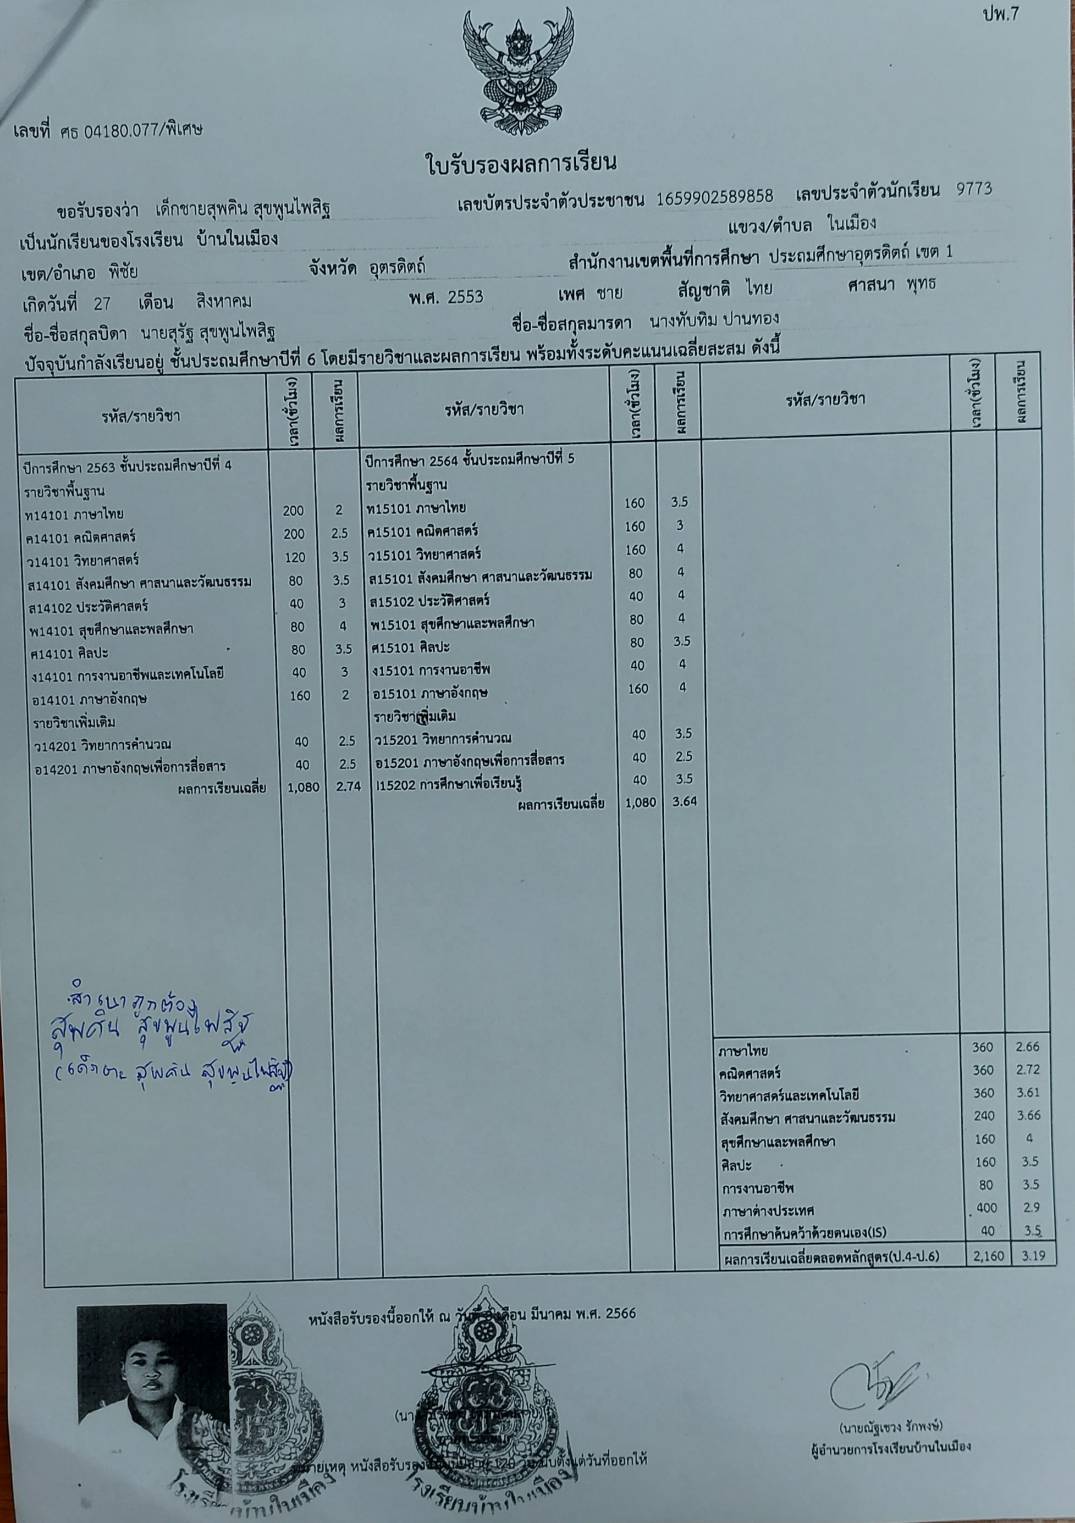 ปพ.7
เลขที่ ศธ 04180.077/พิเศษ
ใบรับรองผลการเรียน
ขอรับรองว่า เด็กชายสุพคิน สุขพูนไพสิฐ เลขบัตรประจำตัวประชาชน 1659902589858 เลขประจำตัวนักเรียน 9773
เป็นนักเรียนของโรงเรียน บ้านในเมือง แขวง/ตำบล ในเมือง
เขต/อำเภอ พิชัย จังหวัด อุตรดิตถ์ สำนักงานเขตพื้นที่การศึกษา ประถมศึกษาอุตรดิตถ์ เขต 1
เกิดวันที่ 27 เดือน สิงหาคม พ.ศ. 2553 เพศ ชาย สัญชาติ ไทย ศาสนา พุทธ
ชื่อ-ชื่อสกุลบิดา นายสุรัฐ สุขพูนไพสิฐ ชื่อ-ชื่อสกุลมารดา นางทับทิม ปานทอง
ปัจจุบันกำลังเรียนอยู่ ชั้นประถมศึกษาปีที่ 6 โดยมีรายวิชาและผลการเรียน พร้อมทั้งระดับคะแนนเฉลี่ยสะสม ดังนี้
รหัส/รายวิชา เวลา(ชั่วโมง) ผลการเรียน รหัส/รายวิชา เวลา(ชั่วโมง) ผลการเรียน รหัส/รายวิชา เวลา(ชั่วโมง) ผลการเรียน
ปีการศึกษา 2563 ชั้นประถมศึกษาปีที่ 4 ปีการศึกษา 2564 ชั้นประถมศึกษาปีที่ 5
รายวิชาพื้นฐาน รายวิชาพื้นฐาน
ท14101 ภาษาไทย 200 2 ท15101 ภาษาไทย 160 3.5
ค14101 คณิตศาสตร์ 200 2.5 ค15101 คณิตศาสตร์ 160 3
ว14101 วิทยาศาสตร์ 120 3.5 ว15101 วิทยาศาสตร์ 160 4
ส14101 สังคมศึกษา ศาสนาและวัฒนธรรม 80 3.5 ส15101 สังคมศึกษา ศาสนาและวัฒนธรรม 80 4
ส14102 ประวัติศาสตร์ 40 3 ส15102 ประวัติศาสตร์ 40 4
พ14101 สุขศึกษาและพลศึกษา 80 4 พ15101 สุขศึกษาและพลศึกษา 80 4
ศ14101 ศิลปะ 80 3.5 ศ15101 ศิลปะ 80 3.5
ง14101 การงานอาชีพและเทคโนโลยี 40 3 ง15101 การงานอาชีพ 40 4
อ14101 ภาษาอังกฤษ 160 2 อ15101 ภาษาอังกฤษ 160 4
รายวิชาเพิ่มเติม รายวิชาเพิ่มเติม
ว14201 วิทยาการคำนวณ 40 2.5 ว15201 วิทยาการคำนวณ 40 3.5
อ14201 ภาษาอังกฤษเพื่อการสื่อสาร 40 2.5 อ15201 ภาษาอังกฤษเพื่อการสื่อสาร 40 2.5
ผลการเรียนเฉลี่ย 1,080 2.74 I15202 การศึกษาเพื่อเรียนรู้ 40 3.5
ผลการเรียนเฉลี่ย 1,080 3.64
สำเนาถูกต้อง
สุพคิน สุขพูนไพสิฐ
(เด็กชาย สุพคิน สุขพูนไพสิฐ)
ภาษาไทย 360 2.66
คณิตศาสตร์ 360 2.72
วิทยาศาสตร์และเทคโนโลยี 360 3.61
สังคมศึกษา ศาสนาและวัฒนธรรม 240 3.66
สุขศึกษาและพลศึกษา 160 4
ศิลปะ 160 3.5
การงานอาชีพ 80 3.5
ภาษาต่างประเทศ 400 2.9
การศึกษาค้นคว้าด้วยตนเอง(IS) 40 3.5
ผลการเรียนเฉลี่ยตลอดหลักสูตร(ป.4-ป.6) 2,160 3.19
หนังสือรับรองนี้ออกให้ ณ เดือน มีนาคม พ.ศ. 2566
(นายณัฐเชวง รักพงษ์)
ผู้อำนวยการโรงเรียนบ้านในเมือง
หมายเหตุ หนังสือรับรอง 120 วัน นับตั้งแต่วันที่ออกให้
โรงเรียนบ้านในเมือง
โรงเรียนบ้านในเมือง